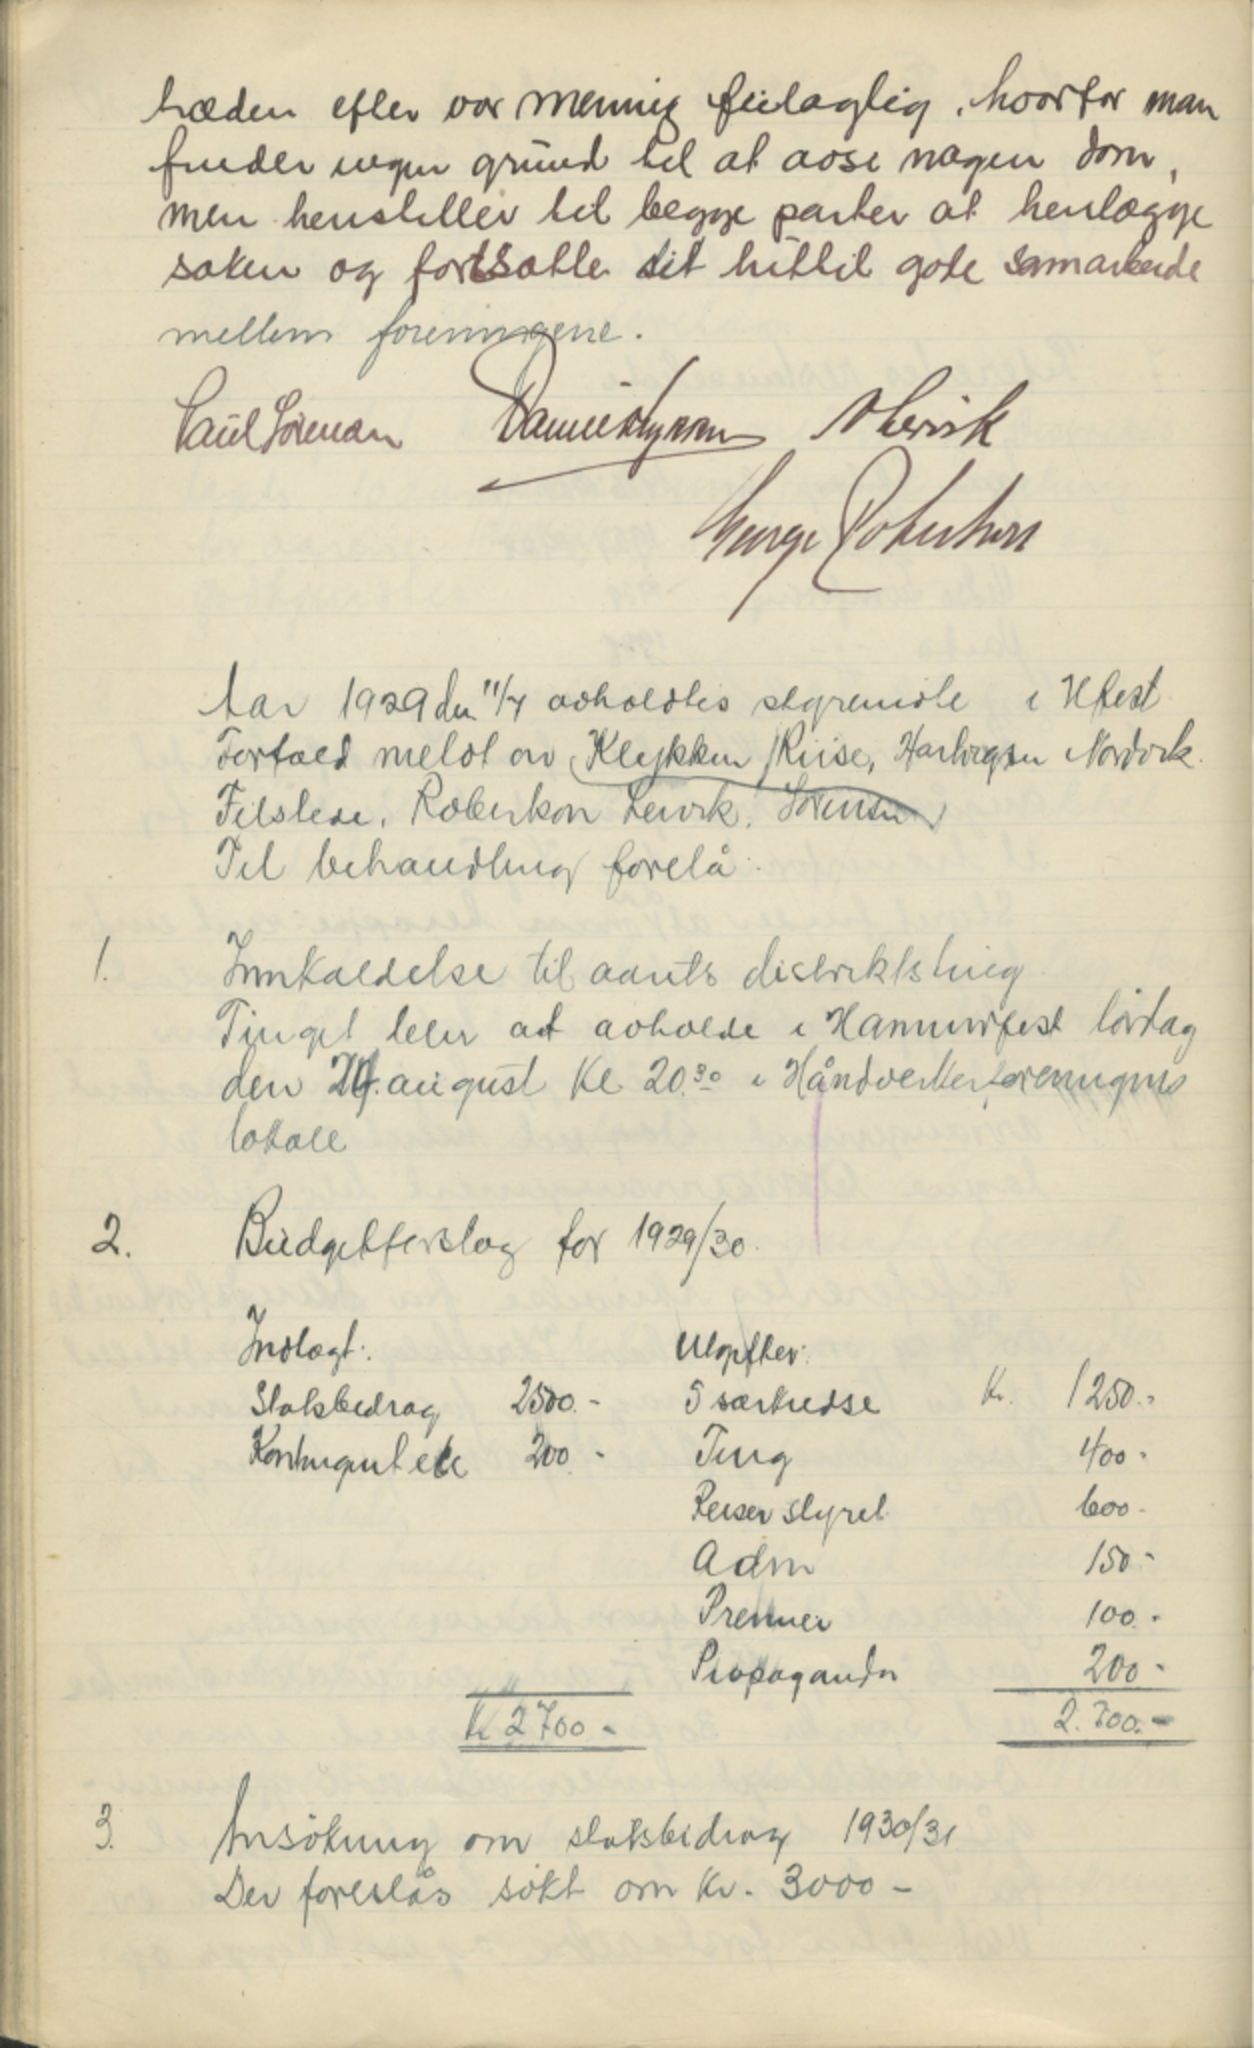 træden efter vor mening feilagtig, hvorfor man
finder ingen grund til at avsi nogen dom,
men henstiller til begge parter at henlægge
saken og fortsatte sit hittil gode samarbeide
mellem foreningene.
Paul Sörensen
George Robertson
Aar 1929 den 11/7 avholdtes styremöte i H.fest
Forfald meldt av Klykken, Riise, Hartvigsen Nordvik
Tilstede, Robertson Lervik, Sörensen
Til behandling forelå:
1. Innkaldelse til aarets distriktsting
Tinget blir at avholde i Hammerfest lördag
den 24. august Kl. 20.30 i Håndverkerforeningens
lokale
2. Budgetforslag for 1929/30.
Indtægt: Utgifter:
Statsbidrag 2500.- 5 særkredse Kr. 1250.-
Kontingent etc 200.- Ting 400.-
Reiser styret 600.-
Adm 150.-
Premier 100.-
Propaganda 200.-
Kr 2700.- 2.700.-
3. Ansökning om statsbidrag 1930/31
Der foreslås sökt om Kr. 3000.-